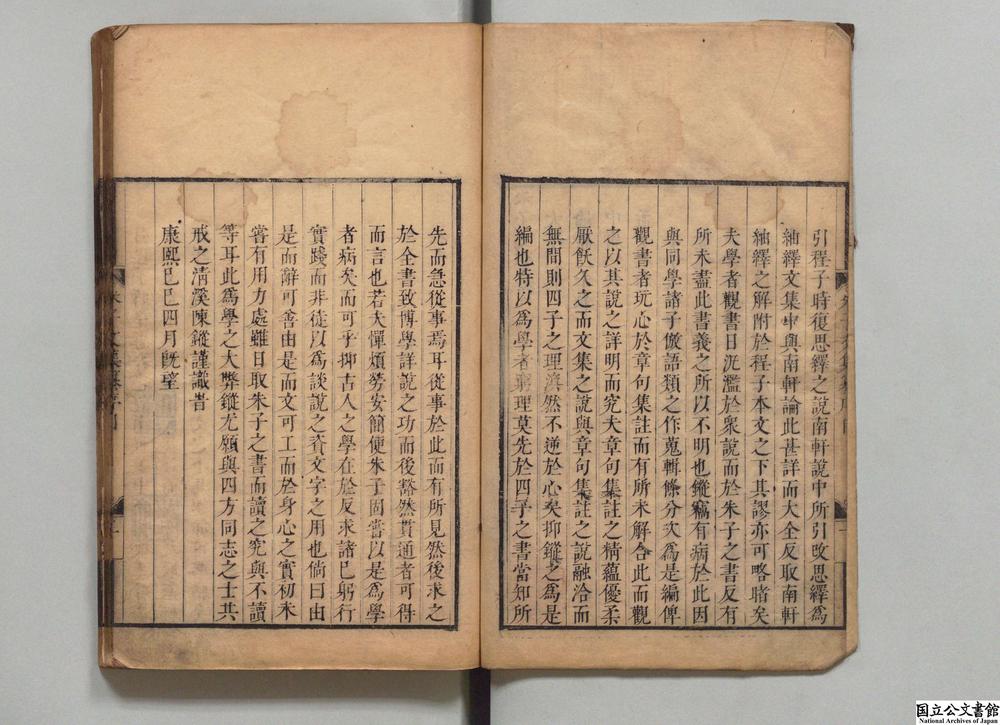 引程子時復思繹之說南軒說中所引改思繹爲
紬繹文集中與南軒論此甚詳而大全反取南軒
紬繹之解附於程子本文之下其謬亦可略睹矣
夫學者觀書日汎濫於衆說而於朱子之書反有
所未盡此書義之所以不明也鏦竊有病於此因
與同學諸子倣語類之作蒐輯條分次爲是編俾
觀書者玩心於章句集註而有所未解合此而觀
之以其說之詳明而究夫章句集註之精蘊優柔
厭飫久之而文集之說與章句集註之說融洽而
無間則四子之理渙然不逆於心矣抑鏦之爲是
編也特以爲學者窮理莫先於四子之書當知所
先而急從事焉耳從事於此而有所見然後求之
於全書致博學詳說之功而後豁然貫通者可得
而言也若夫憚煩勞安簡便朱子固嘗以是爲學
者病矣而可乎抑古人之學在於反求諸已躬行
實踐而非徒以爲談說之資文字之用也倘曰由
是而辭可善由是而文可工而於身心之實初未
嘗有用力處雖日取朱子之書而讀之究與不讀
等耳此爲學之大弊鏦尤願與四方同志之士共
戒之清溪陳鏦謹識旹
康熙己巳四月旣望
國立公文書館
National Archives of Japan